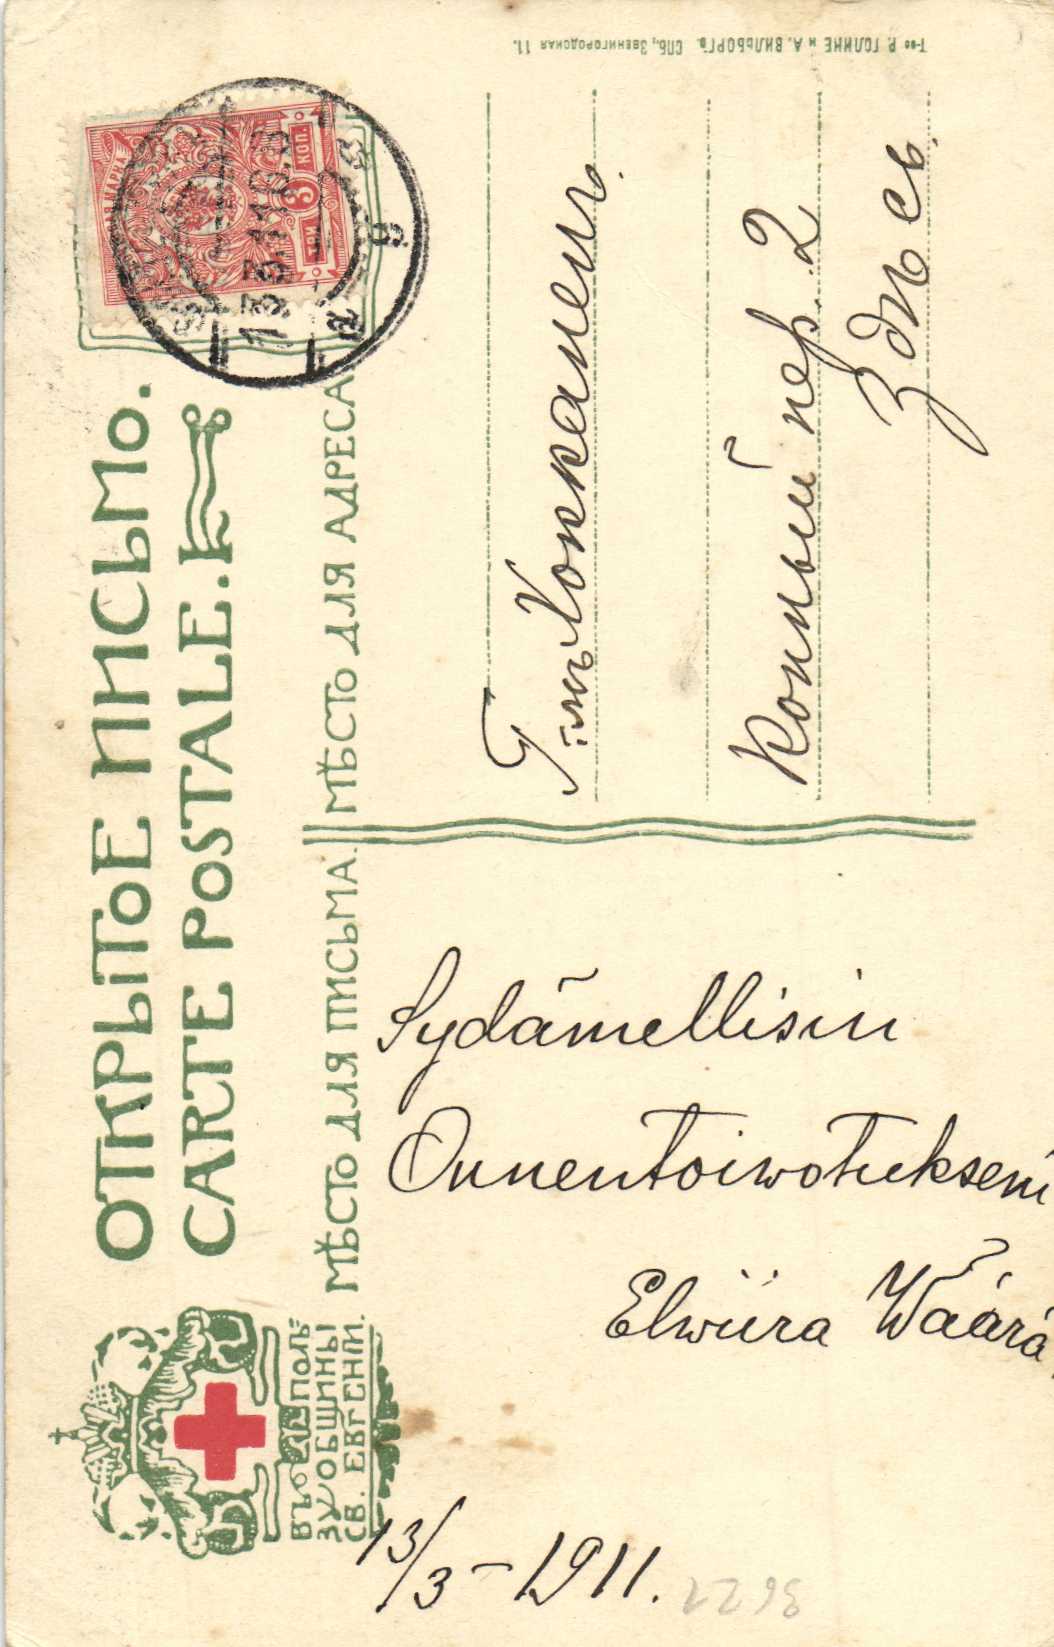 ОТКРЫТОЕ ПИСЬМО.
CARTE POSTALE.
ВЪ ПОЛЬ=
ЗУ ОБЩИНЫ
СВ. ЕВГЕНІИ.
МѢСТО ДЛЯ ПИСЬМА.
МѢСТО ДЛЯ АДРЕСА
МАРКА
ТРИ 3 КОП.
13.3.11
Хокканенъ.
Конный пер. 2
Здѣсь.
Sydämellisin
Onnentoiwotukseni
Elwiira Wäärä
13/3–1911.
3622
Т-во Р. ГОЛИКЕ и А. ВИЛЬБОРГЪ. СПБ., Звенигородская 11.